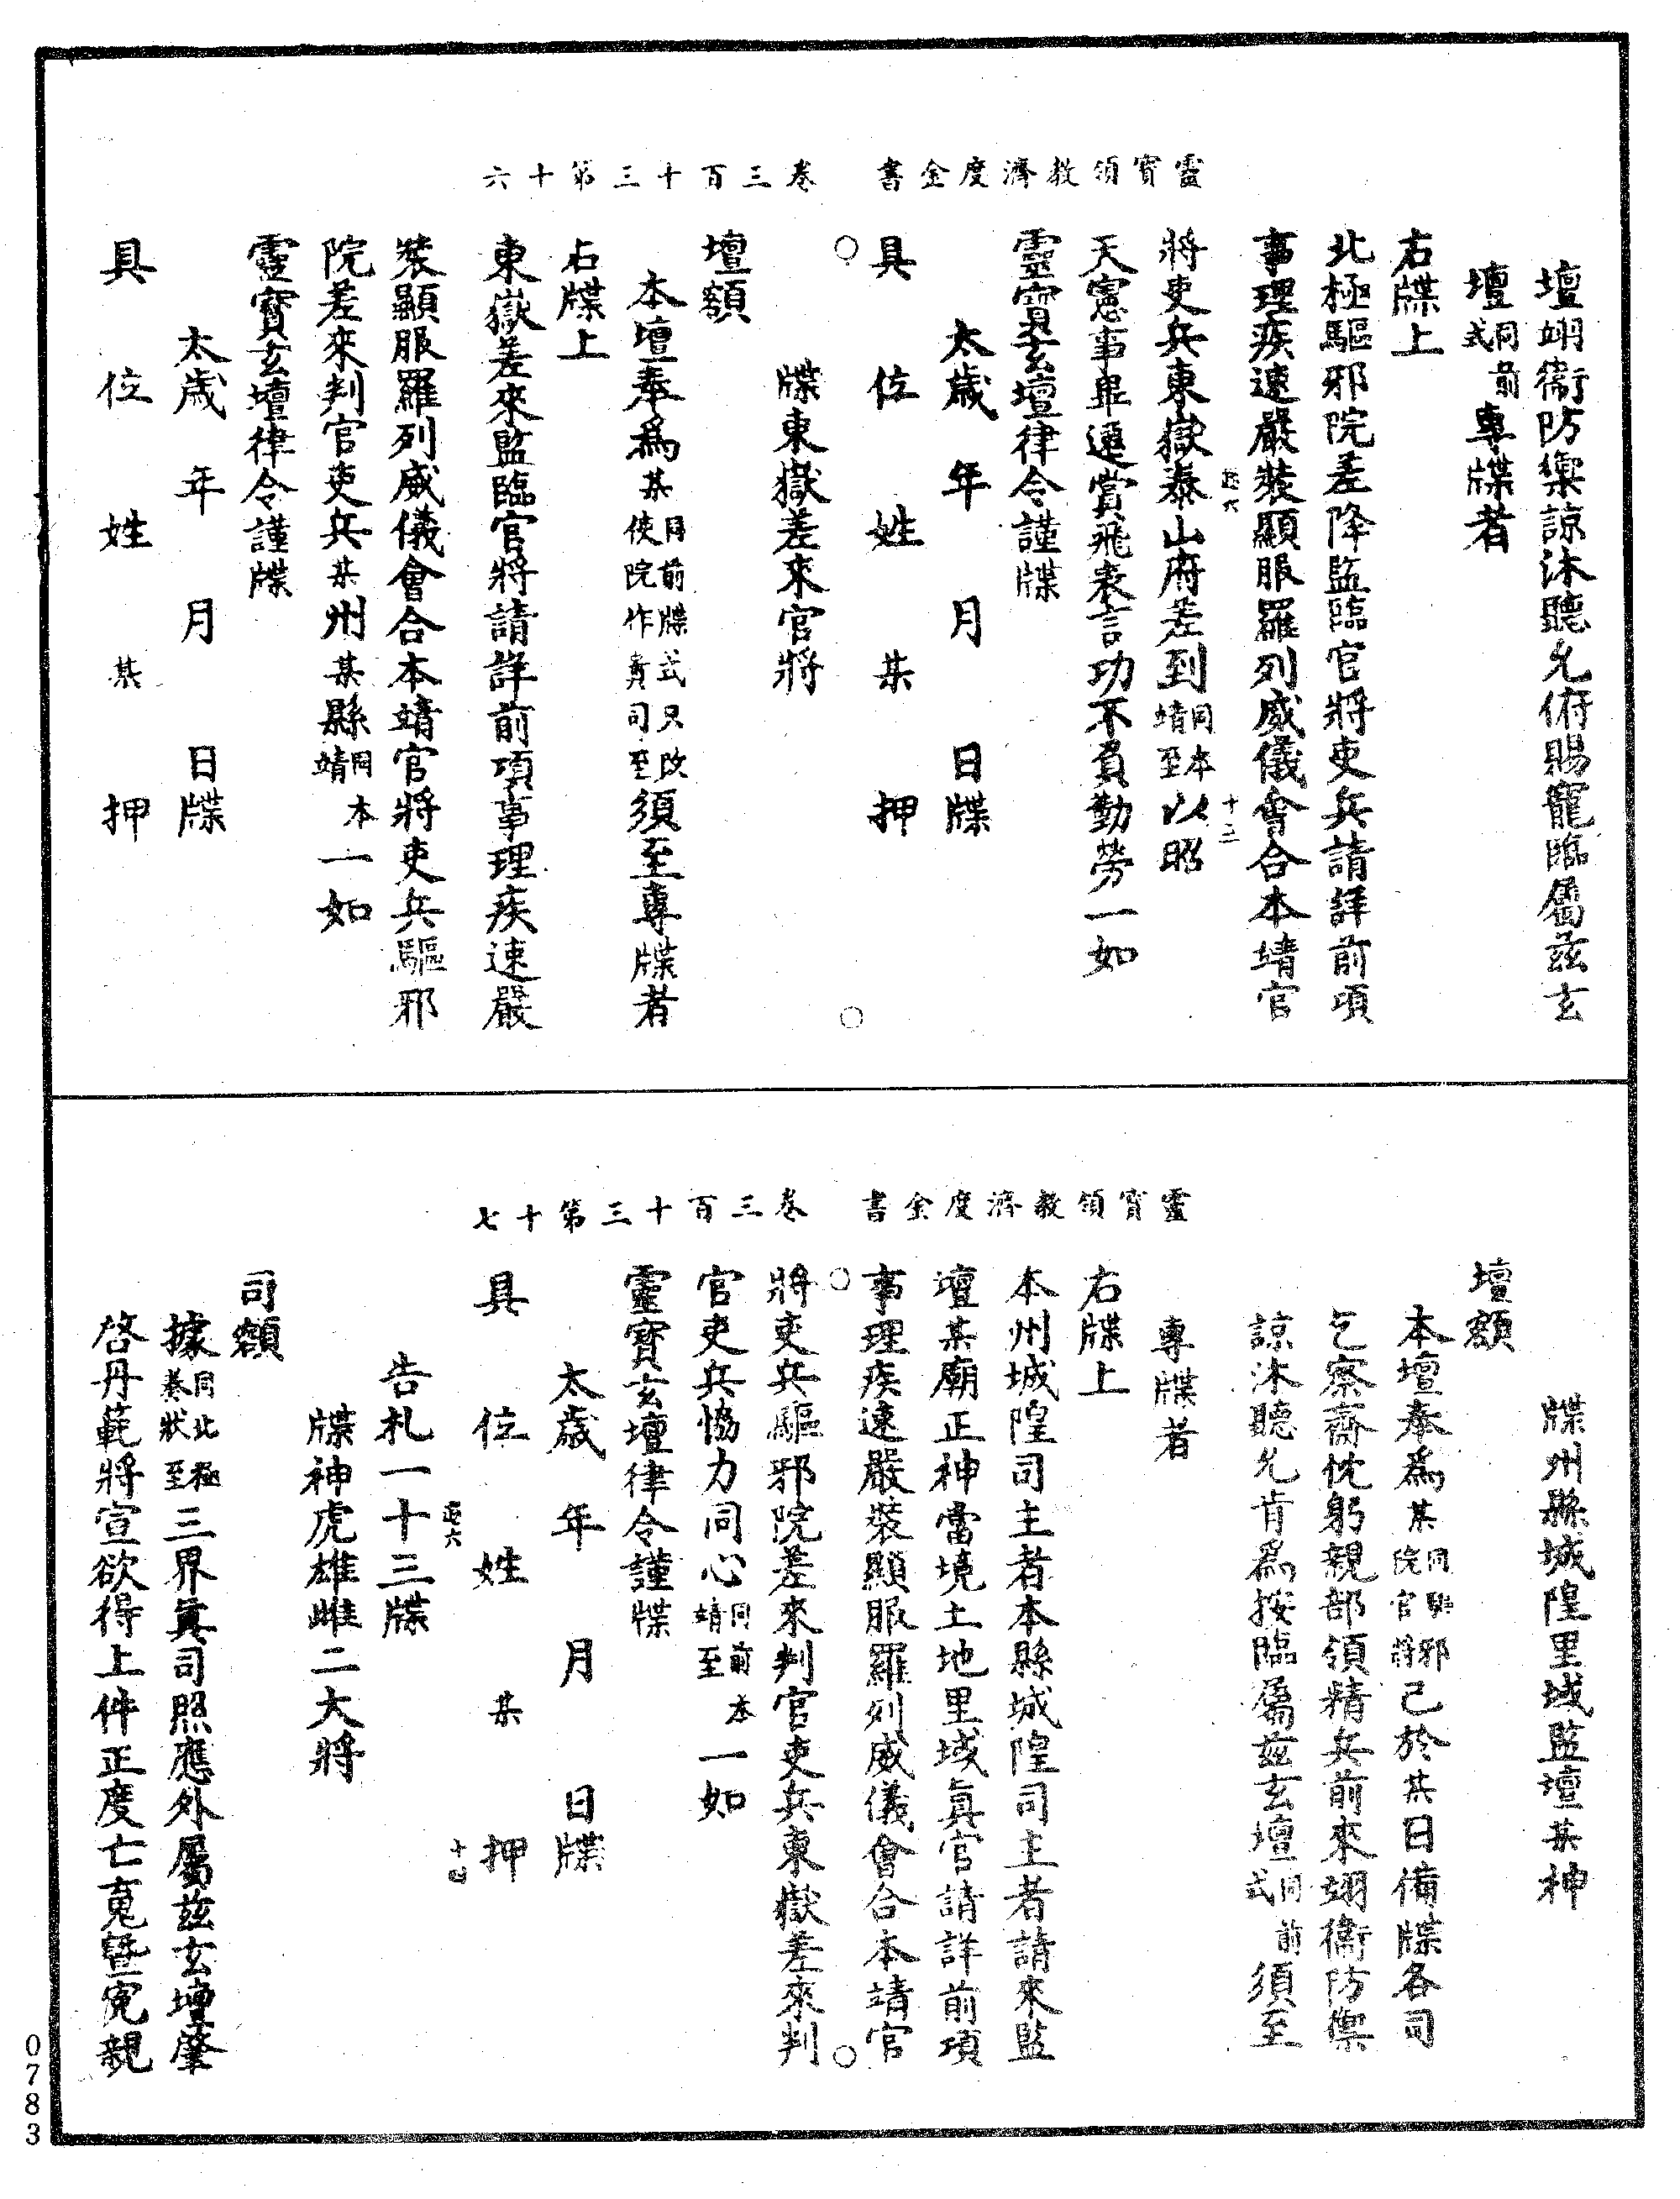 靈寶領教濟度金書　卷三百十三第十六
壇翊衞防禦諒沐聽允俯賜寵臨屬茲玄
壇同前式專牒者
右牒上
北極驅邪院差降監臨官將吏兵請詳前項
事理疾速嚴裝顯服羅列威儀會合本靖官
將吏兵東嶽泰山府差到同本靖至以昭
天憲事畢遷賞飛表言功不負勤勞一如
靈寶玄壇律令謹牒
太歲　年　月　日牒
具　位　姓　某　押
牒東嶽差來官將
壇額
本壇奉爲某同前牒式只改使院作貴司至須至專牒者
右牒上
東嶽差來監臨官將請詳前項事理疾速嚴
裝顯服羅列威儀會合本靖官將吏兵驅邪
院差來判官吏兵某州某縣同本靖一如
靈寶玄壇律令謹牒
太歲　年　月　日牒
具　位　姓　某　押
靈寶領教濟度金書　卷三百十三第十七
牒州縣城隍里域監壇某神
壇額
本壇奉爲某同驅邪院官將己於某日備牒各司
乞察齋忱躬親部領精兵前來翊衞防禦
諒沐聽允肯爲按臨屬茲玄壇同前式須至
專牒者
右牒上
本州城隍司主者本縣城隍司主者請來監
壇某廟正神當境土地里域眞官請詳前項
事理疾速嚴裝顯服羅列威儀會合本靖官
將吏兵驅邪院差來判官吏兵東嶽差來判
官吏兵恊力同心同前本靖至一如
靈寶玄壇律令謹牒
太歲　年　月　日牒
具　位　姓　某　押
十四
告札一十三牒
牒神虎雄雌二大將
司額
據同北極養狀至三界眞司照應外屬茲玄壇肇
啓丹範將宣欲得上件正度亡魂曁寃親
0783